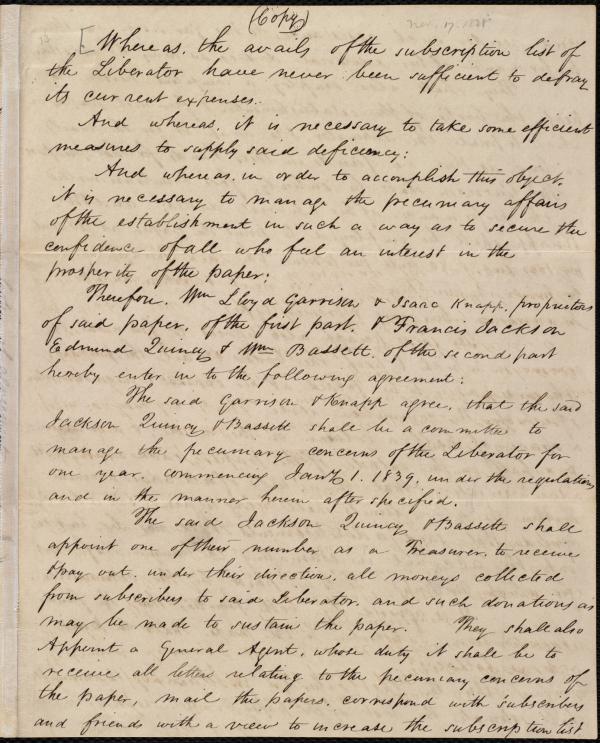 (Copy)
[Whereas, the avails of the subscription list of
the Liberator have never been sufficient to defray
its current expenses.
And whereas, it is necessary to take some efficient
measures to supply said deficiency;
And whereas, in order to accomplish this object,
it is necessary to manage the pecuniary affairs
of the establishment in such a way as to secure the
confidence of all who feel an interest in the
prosperity of the paper;
Therefore, Wm Lloyd Garrison & Isaac Knapp, proprietors
of said paper, of the first part, & Francis Jackson
Edmund Quincy & Wm Bassett, of the second part
hereby enter in to the following agreement:
The said Garrison & Knapp agree, that the said
Jackson Quincy & Bassett shall be a committee to
manage the pecuniary concerns of the Liberator for
one year, commencing Jany 1. 1839, under the regulations
and in the manner herein after specified.
The said Jackson Quincy & Bassett shall
appoint one of their number as a Treasurer, to receive
& pay out, under their direction, all moneys collected
from subscribers to said Liberator, and such donations as
may be made to sustain the paper. They shall also
Appoint a General Agent, whose duty it shall be to
receive all letters relating to the pecuniary concerns of
the paper, mail the papers, correspond with subscribers
and friends with a view to increase the subscription list